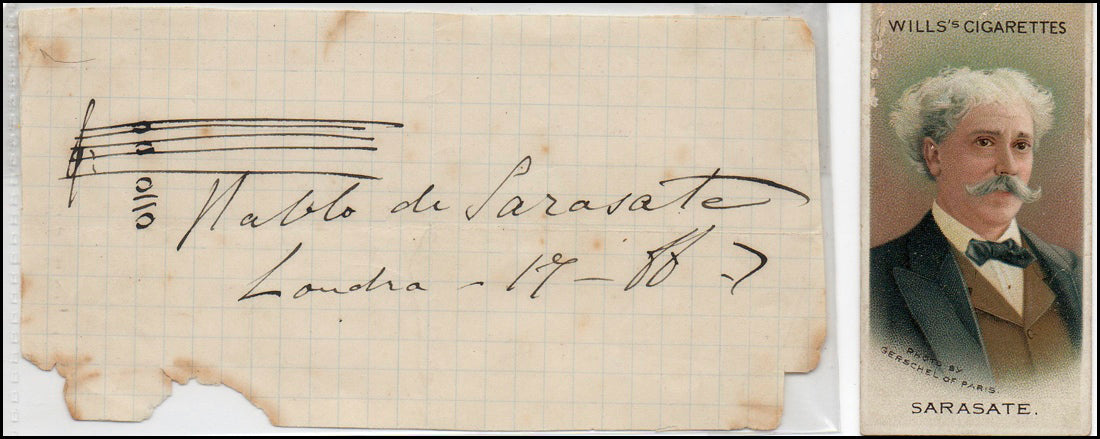 Pablo de Sarasate
Londra - 17 -
WILLS's CIGARETTES
PHOTO BY
GERSCHEL OF PARIS.
SARASATE.